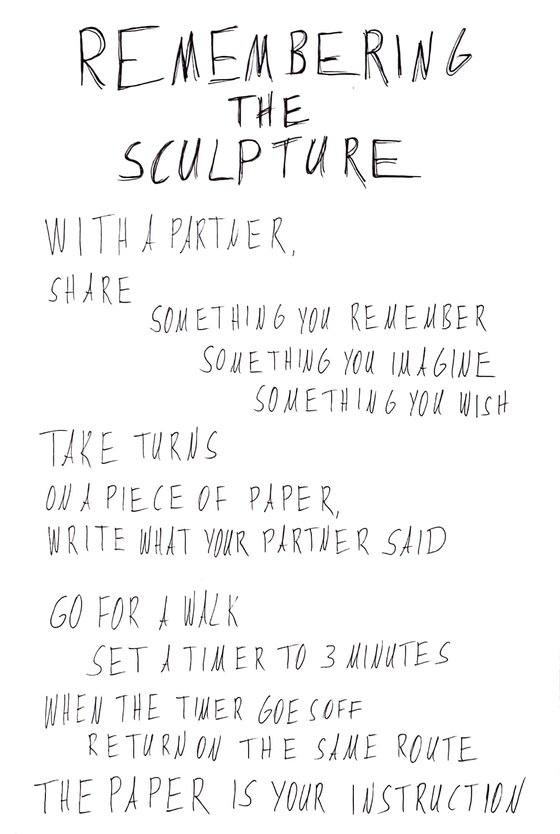 REMEMBERING
THE
SCULPTURE
WITH A PARTNER,
SHARE
SOMETHING YOU REMEMBER
SOMETHING YOU IMAGINE
SOMETHING YOU WISH
TAKE TURNS
ON A PIECE OF PAPER,
WRITE WHAT YOUR PARTNER SAID
GO FOR A WALK
SET A TIMER TO 3 MINUTES
WHEN THE TIMER GOES OFF
RETURN ON THE SAME ROUTE
THE PAPER IS YOUR INSTRUCTION